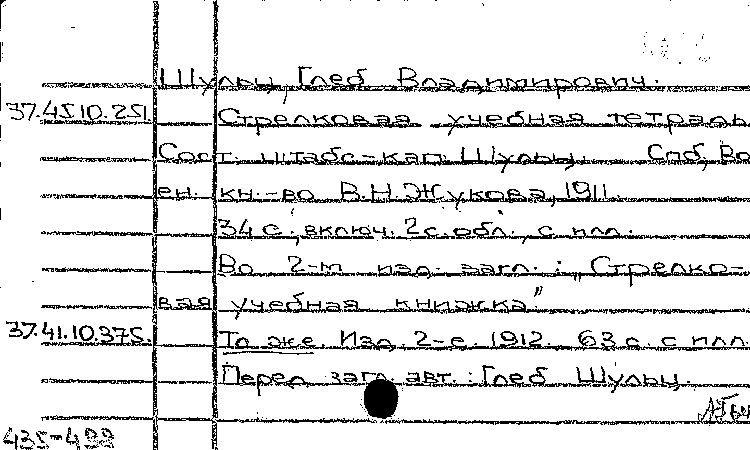 Шульц, Глеб Владимирович.
37.45.10.251. Стрелковая учебная тетрадь
Сост. штабс-кап. Шульц. Спб, Во
ен. кн.-во В.Н.Жукова, 1911.
34 с., включ. 2 с. обл., с илл.
Во 2-м изд. загл.: „Стрелко-
вая учебная книжка"
37.41.10.375. То же. Изд. 2-е. 1912. 63 с. с илл.
Перед загл. авт.: Глеб Шульц
435-499